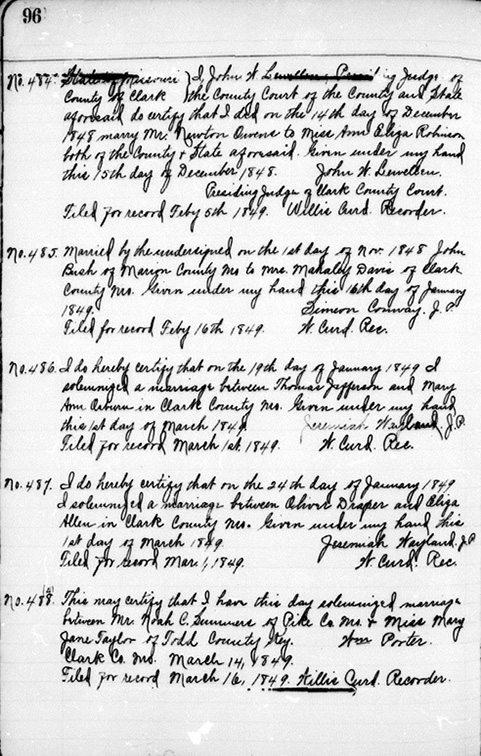 96
No. 484. State of Missouri } I, John W. Lewellen, Presiding Judge of
County of Clark the County Court of the County and State
aforesaid do certify that I did on the 14th day of December
1848 marry Mr. Newton Owens to Miss Ann Eliza Robinson
both of the County & State aforesaid. Given under my hand
this 15th day of December 1848. John W. Lewellen.
Presiding Judge of Clark County Court.
Filed for record Feby 5th 1849. Willis Curd. Recorder.
No. 485. Married by the undersigned on the 1st day of Nov. 1848 John
Bish of Marion County Mo to Mrs. Mahaley Davis of Clark
County Mo. Given under my hand this 16th day of January
1849. Simeon Conway. J.P.
Filed for record Feby 16th 1849. W. Curd. Rec.
No. 486. I do hereby certify that on the 19th day of January 1849 I
solemnized a marriage between Thomas Jefferson and Mary
Ann in Clark County Mo. Given under my hand
this 1st day of March 1849. Jeremiah Wayland. J.P.
Filed for record March 1st, 1849. W. Curd. Rec.
No. 487. I do hereby certify that on the 24th day of January 1849
I solemnized a marriage between Oliver Draper and Eliza
Allen in Clark County Mo. Given under my hand this
1st day of March 1849. Jeremiah Wayland. J.P.
Filed for record Mar. 1, 1849. W. Curd. Rec.
No. 488. This may certify that I have this day solemnized marriage
between Mr. Noah C. Summers of Pike Co. Mo. & Miss Mary
Jane Taylor of Todd County Ky. Wm Porter.
Clark Co. Mo. March 14, 1849.
Filed for record March 16, 1849. Willis Curd. Recorder.